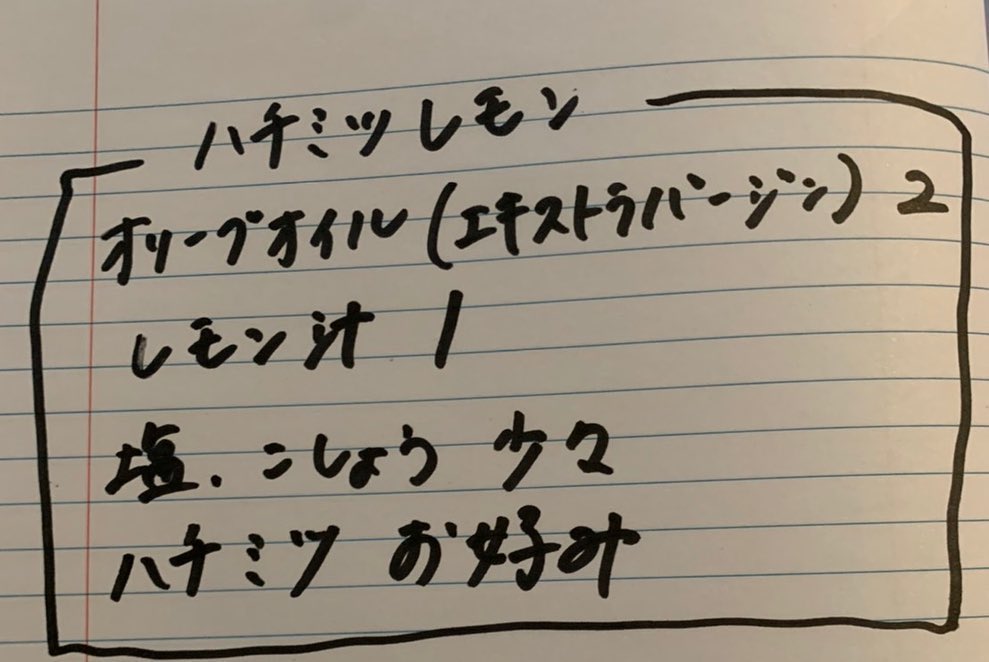 ハチミツレモン
オリーブオイル(エキストラバージン) 2
レモン汁 1
塩、こしょう 少々
ハチミツ お好み